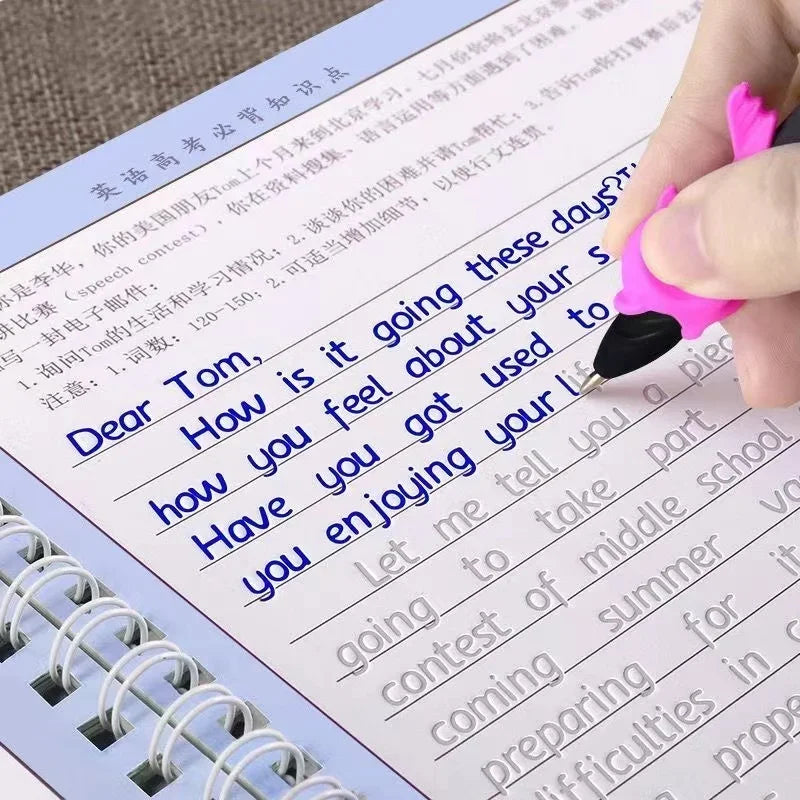 英语高考必背知识点
你是李华，你的美国朋友Tom上个月来到北京学习。七月份你将去北京参
讲比赛（speech contest），你在资料搜集、语言运用等方面遇到了困难。请根
写一封电子邮件：
1. 询问Tom的生活和学习情况；2. 谈谈你的困难并请Tom帮忙；3. 告诉Tom你打算赛后去看
注意：1. 词数：120-150；2. 可适当增加细节，以使行文连贯。
Dear Tom,
How is it going these days?
how you feel about your s
Have you got used to
you enjoying your life
Let me tell you a piec
going to take part
contest of middle school
coming summer va
preparing for it
difficulties in c
prope